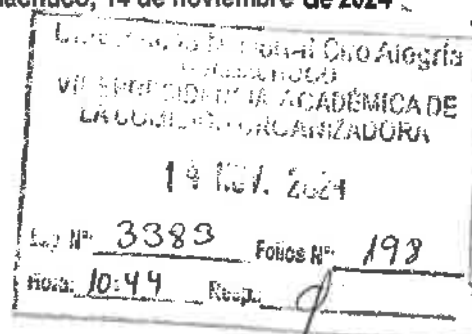 14 de noviembre de 2024
Ciro Alegría
VICEPRESIDENCIA ACADÉMICA DE
LA COMISIÓN ORGANIZADORA
NOV. 2024
Exp. N°: 3383 Folios N°: 198
Hora: 10:44 Recep.: